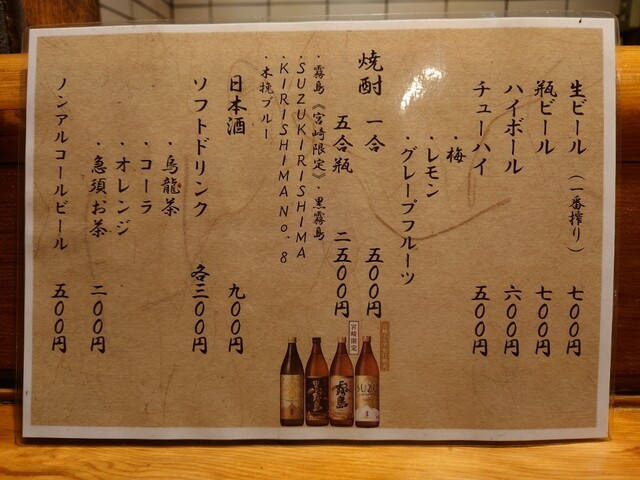 生ビール（一番搾り） 七〇〇円
瓶ビール 七〇〇円
ハイボール 六〇〇円
チューハイ 五〇〇円
・梅
・レモン
・グレープフルーツ
焼酎 一合 五〇〇円
五合瓶 二五〇〇円
・霧島《宮崎限定》・黒霧島
・SUZUKIRISHIMA
・KIRISHIMA No.8
・木挽ブルー
日本酒 九〇〇円
ソフトドリンク 各三〇〇円
・烏龍茶
・コーラ
・オレンジ
・急須お茶 二〇〇円
ノンアルコールビール 五〇〇円
宮崎限定
黒霧島
霧島
SUZU